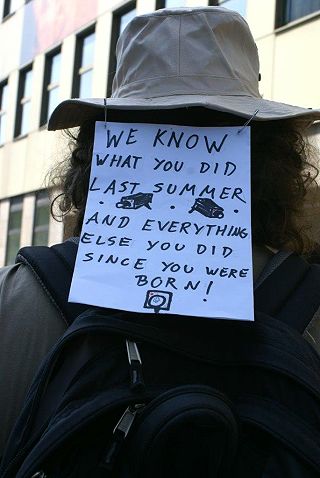 WE KNOW
WHAT YOU DID
LAST SUMMER
AND EVERYTHING
ELSE YOU DID
SINCE YOU WERE
BORN!